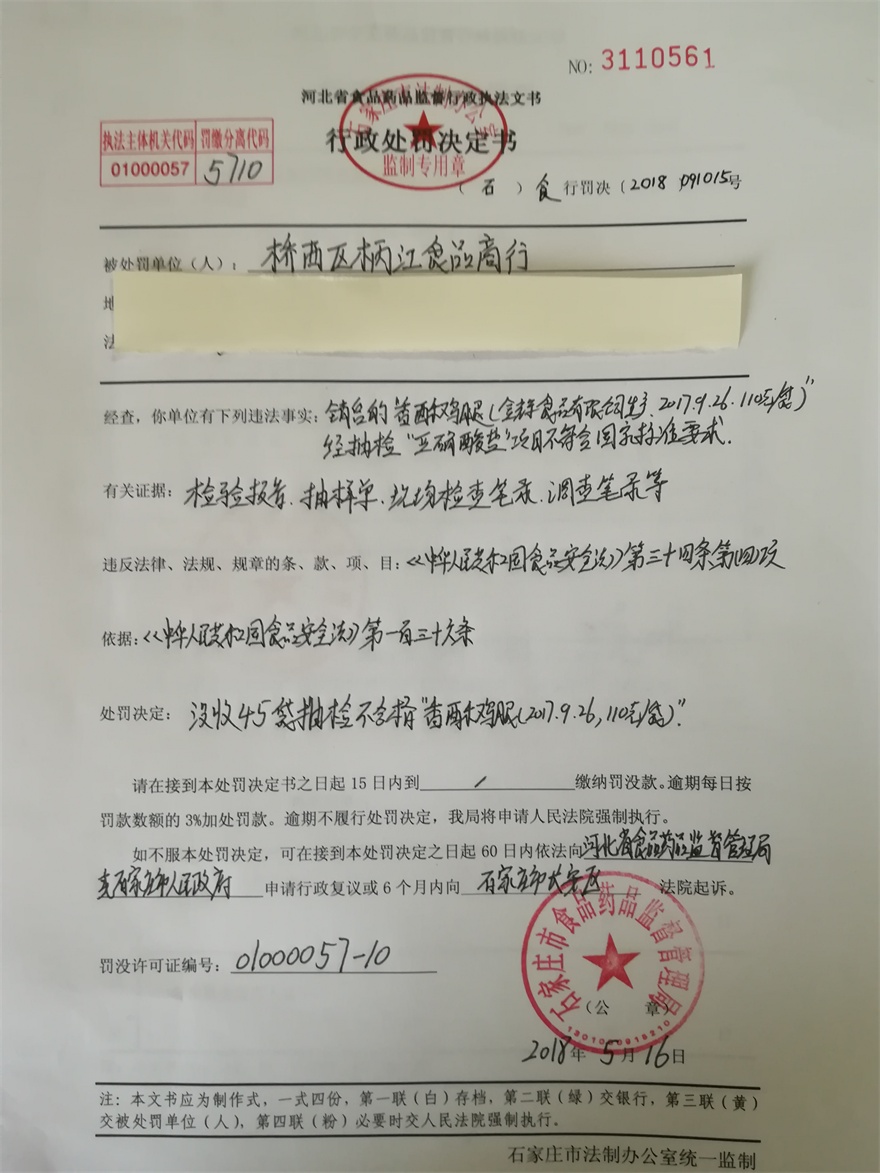 NO: 3110561
河北省食品药品监督行政执法文书
石家庄市法制办公室
监制专用章
行政处罚决定书
执法主体机关代码 罚缴分离代码
01000057 5710
（石）食行罚决〔2018〕091015号
被处罚单位（人）：桥西区柄江食品商行
地
法
经查，你单位有下列违法事实：销售的"香酥鸡腿(食品有限公司生产、2017.9.26、110克/袋)"
经抽检"亚硝酸盐"项目不符合国家标准要求.
有关证据：检验报告、抽样单、现场检查笔录、调查笔录等
违反法律、法规、规章的条、款、项、目：《中华人民共和国食品安全法》第三十四条第(四)项
依据：《中华人民共和国食品安全法》第一百三十六条
处罚决定：没收45袋抽检不合格"香酥鸡腿(2017.9.26,110克/袋)".
请在接到本处罚决定书之日起 15 日内到 / 缴纳罚没款。逾期每日按
罚款数额的 3%加处罚款。逾期不履行处罚决定，我局将申请人民法院强制执行。
如不服本处罚决定，可在接到本处罚决定之日起 60 日内依法向河北省食品药品监督管理局
或石家庄市人民政府申请行政复议或 6 个月内向石家庄市长安区法院起诉。
罚没许可证编号：01000057-10
石家庄市食品药品监督管理局
（公 章）
2018年5月16日
注：本文书应为制作式，一式四份，第一联（白）存档，第二联（绿）交银行，第三联（黄）
交被处罚单位（人），第四联（粉）必要时交人民法院强制执行。
石家庄市法制办公室统一监制